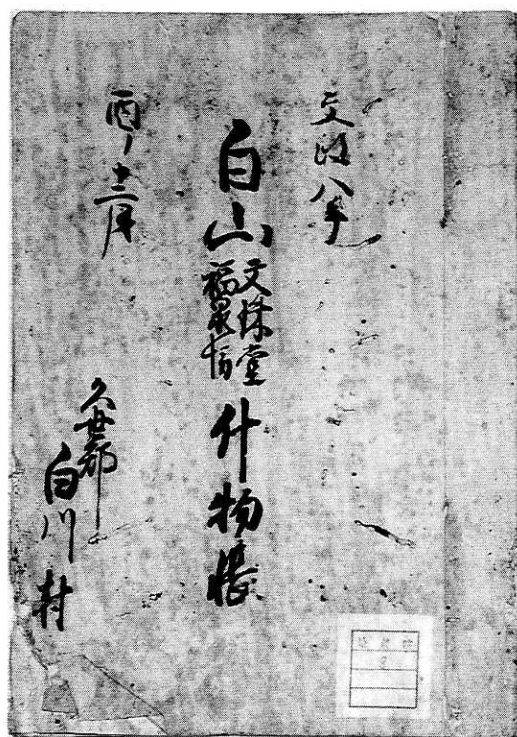 文政八年
白山
文殊堂
福泉坊
什物帳
酉ノ十二月
久世郡
白川村